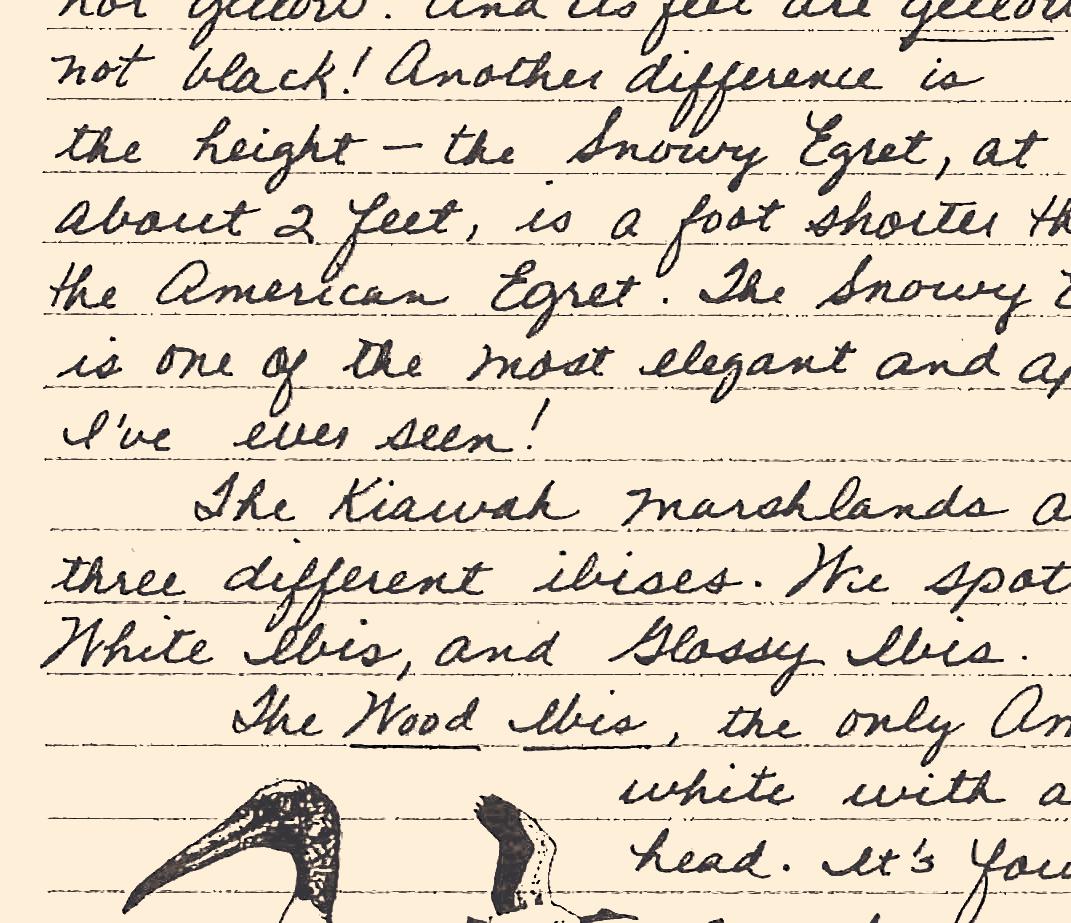 not yellow. And its feet are yellow
not black! Another difference is
the height — the Snowy Egret, at
about 2 feet, is a foot shorter
the American Egret. The Snowy
is one of the most elegant and
I've ever seen!
The Kiawah marshlands
three different ibises. We
White Ibis, and Glossy Ibis.
The Wood Ibis, the only
white with a
head. It's